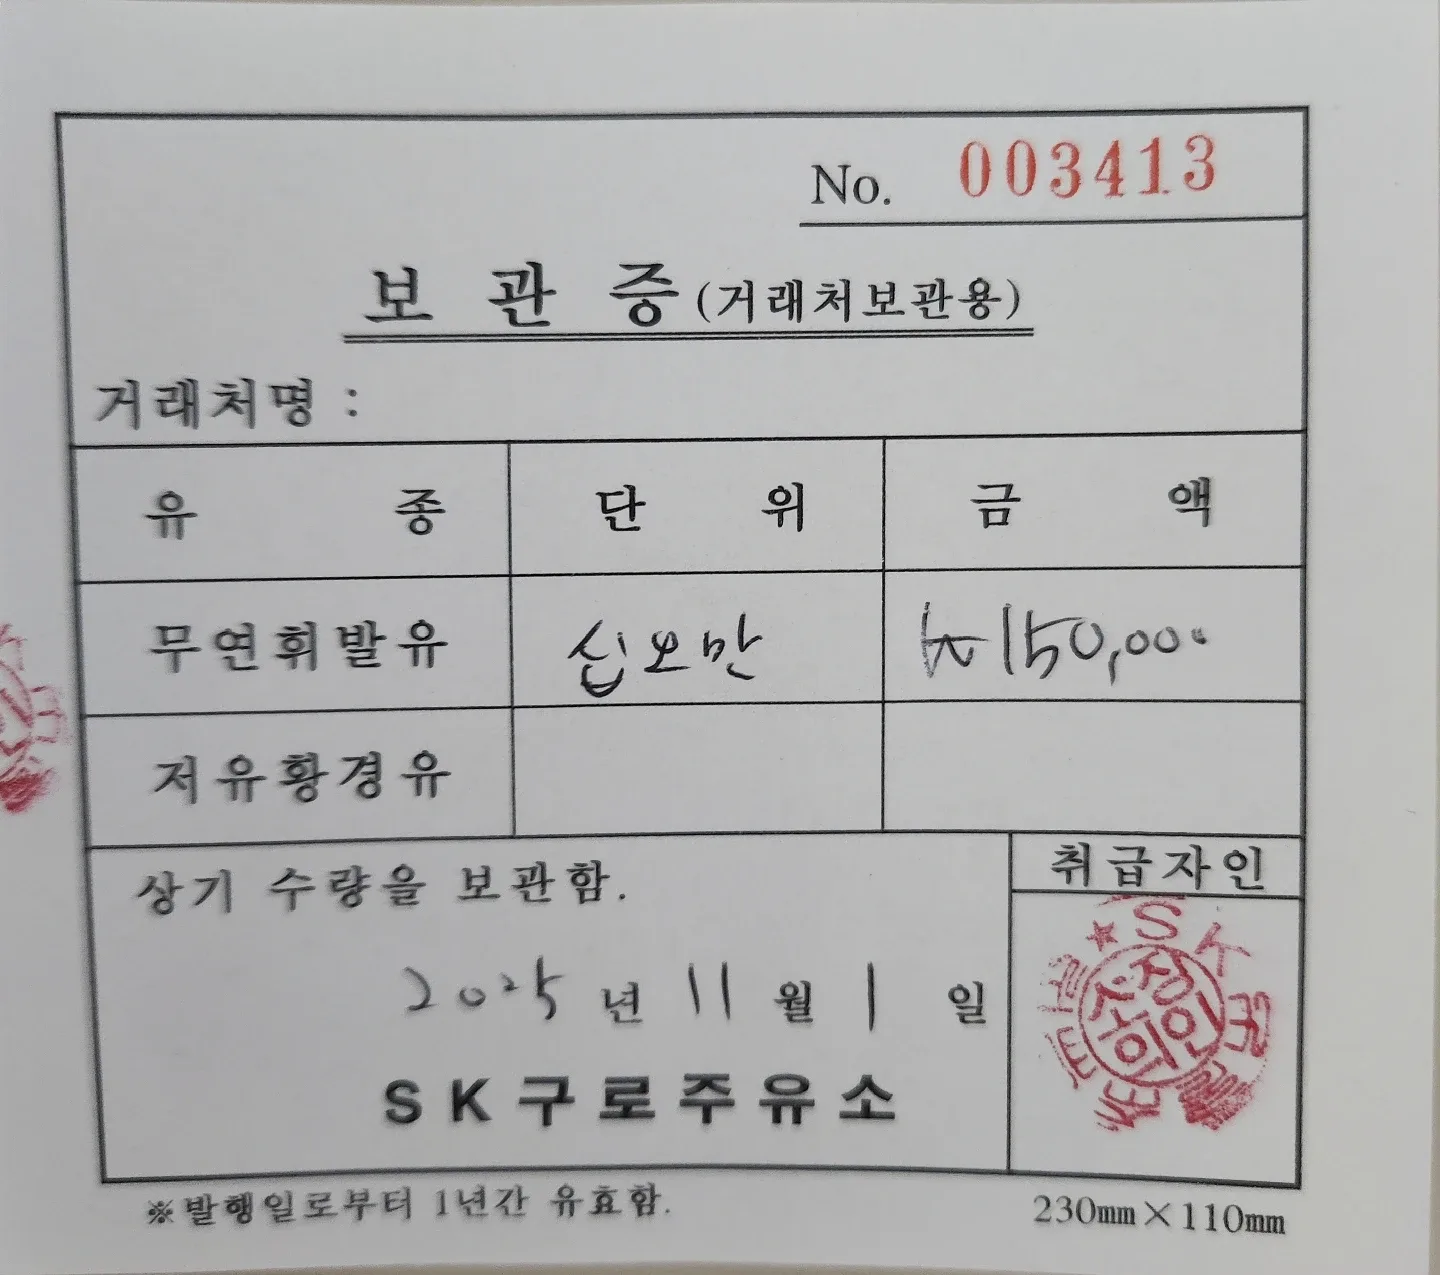 No. 003413
보 관 증 (거래처보관용)
거래처명 :
유 종 단 위 금 액
무연휘발유 십오만 ₩150,000
저유황경유
상기 수량을 보관함.
취급자인
2025 년 11 월 1 일
SK구로주유소
SK
※발행일로부터 1년간 유효함.
230mm×110mm